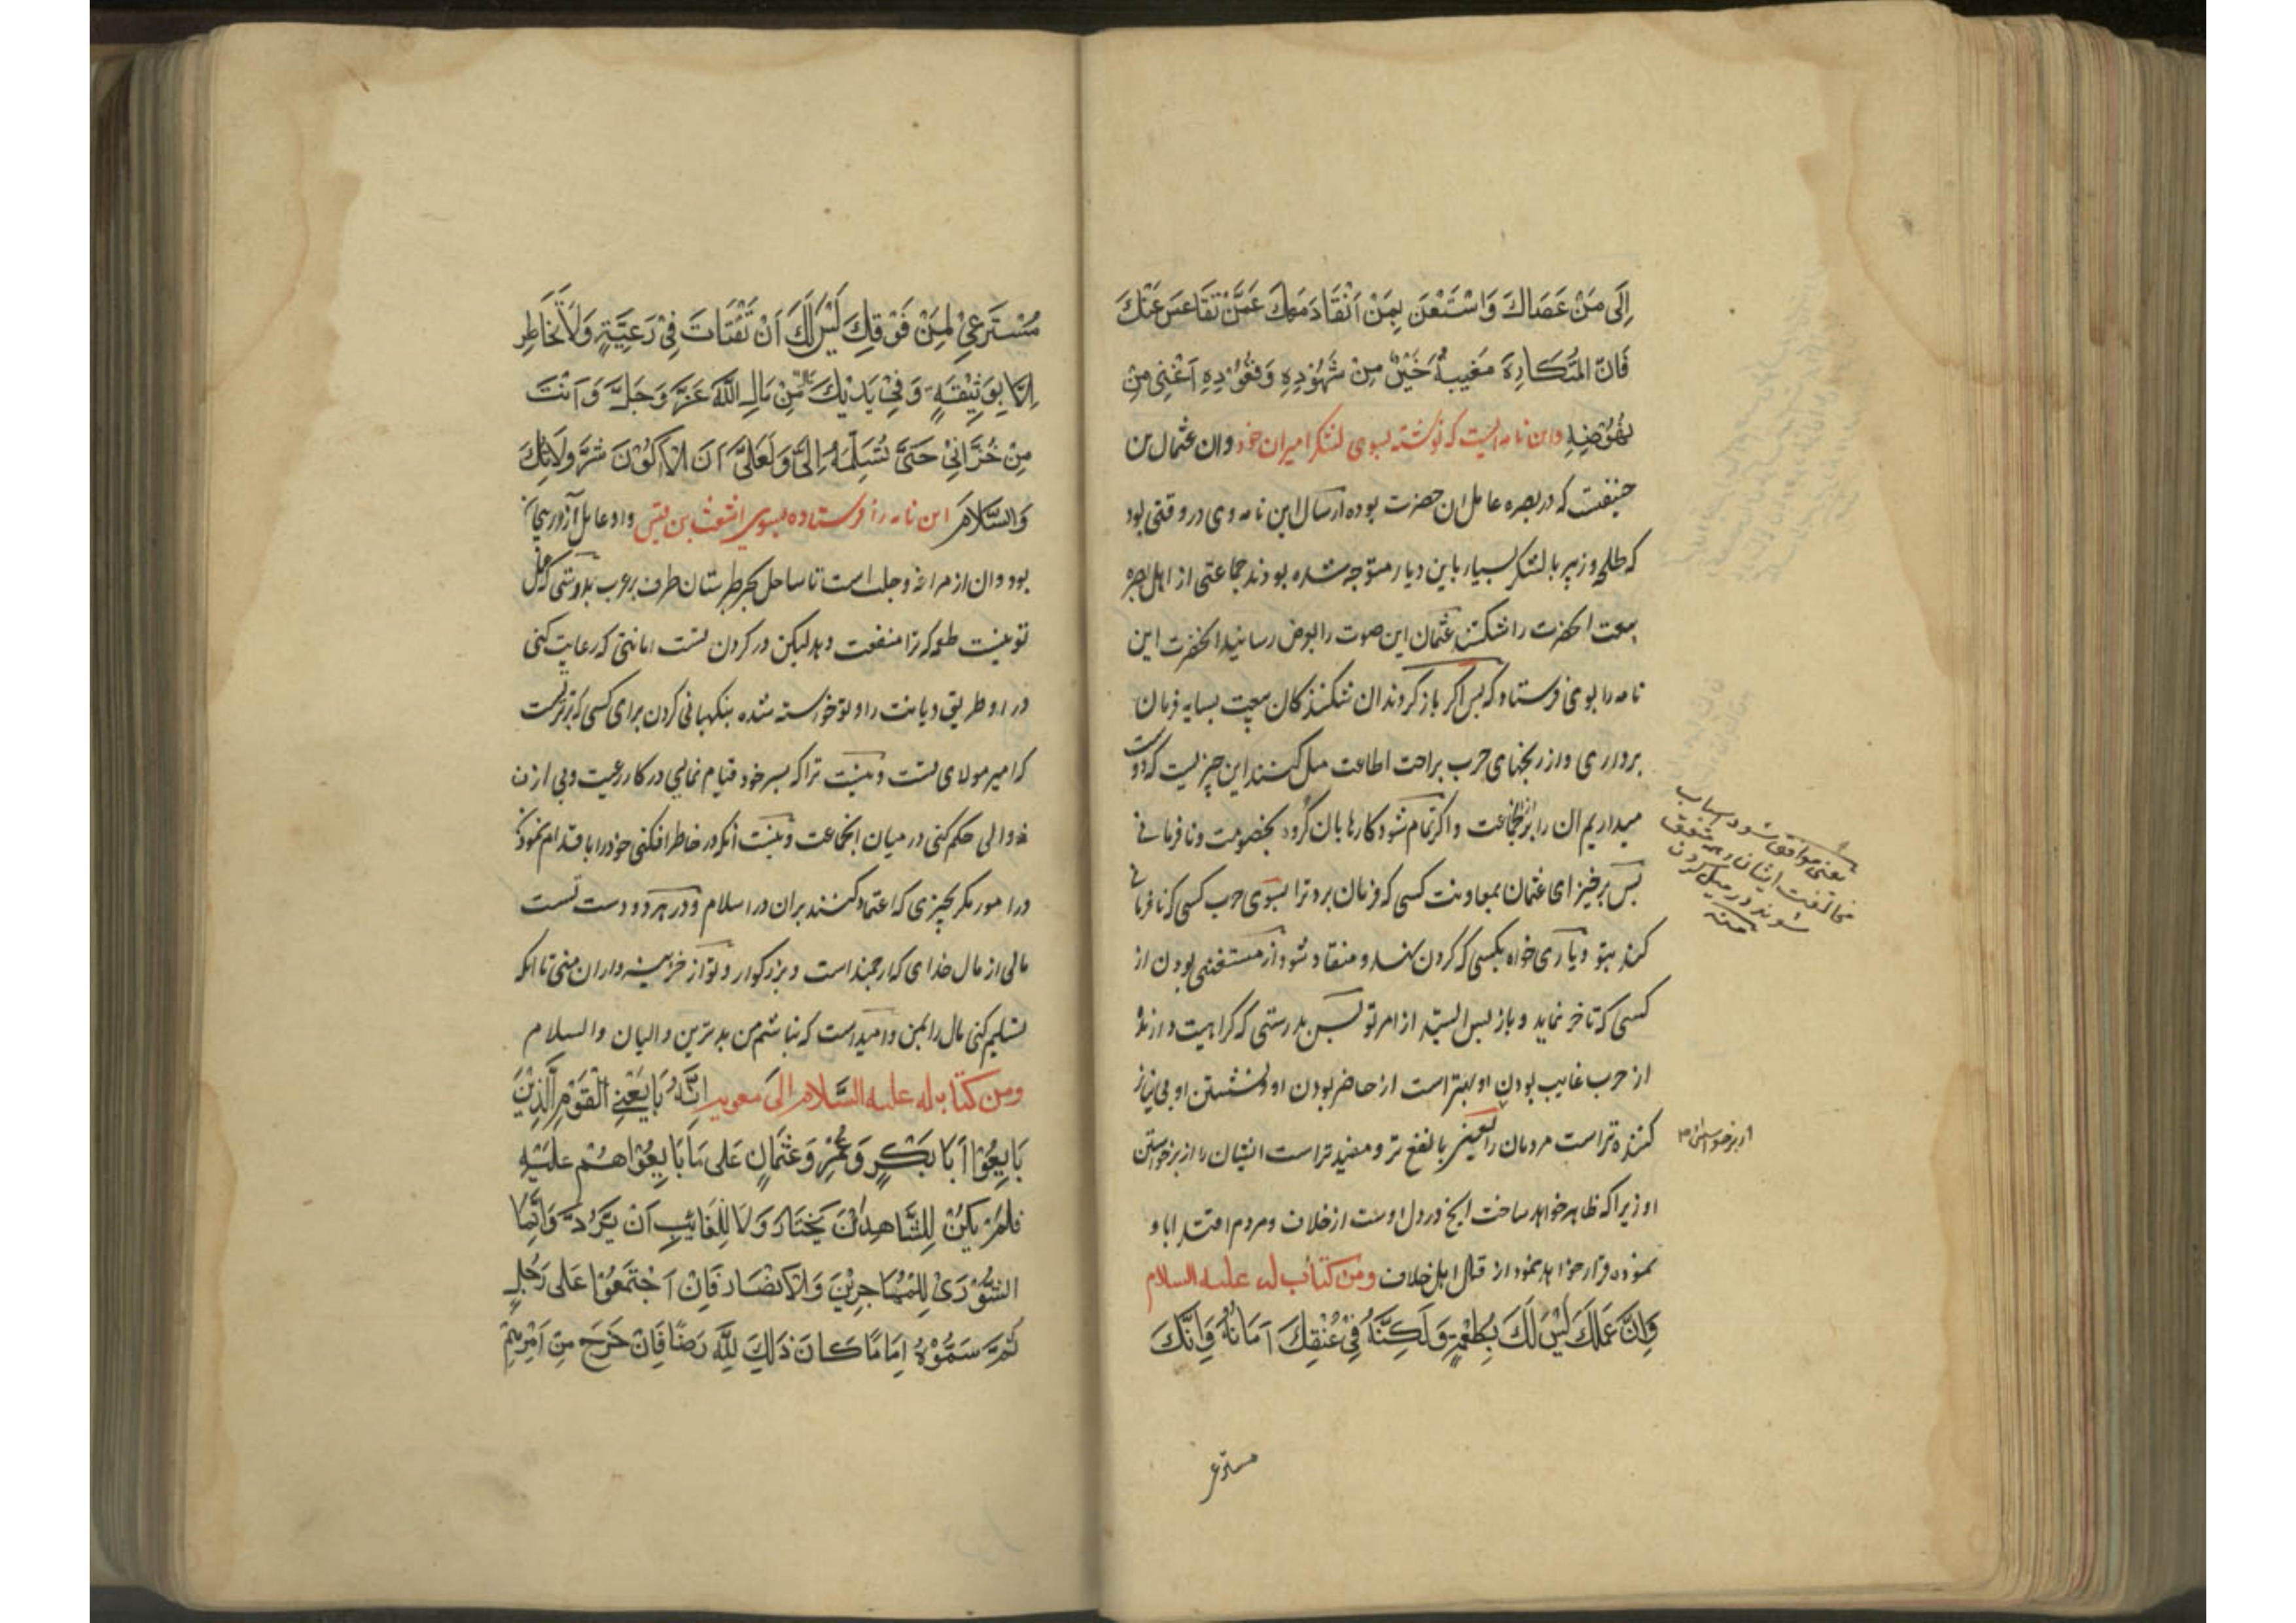 إِلَى مَنْ عَصَاكَ وَاسْتَعْنَ بِمَنْ اَنْقَادَ مَعَكَ عَمَّنْ تَقَاعَسَ عَنْكَ
فَاِنَّ المُتَكَارِهَ مَغِيبُهُ خَيْرٌ مِنْ شُهُوْدِهِ وَقُعُوْدِهِ اَغْنى مِنْ
نُهُوْضِهِ واین نامه ایست که نوشته بسوی لشکر امیران خود وان عثمان بن
حنیفت که در بصره عامل ان حضرت بوده ارسال این نامه وی در وقتی بود
که طلحه و زبیر با لشکر بسیار باین دیار متوجه شده بودند جماعتی از اهل بصره
بیعت انحضرت را شکستند عثمان این صوت را بعرض رسانید انحضرت این
نامه را بوی فرستاد که پس اکر باز کردند ان شکنندکان بیعت بسایه فرمان
برداری و از رنجهای حرب براحت اطاعت میل کنند این چیزیست که دوست
میداریم ان را برای جماعت و اکر تمام شود کارها بان کروه بخصومت و نافرمانی
پس برخیز ای عثمان بمعاونت کسی که فرمان برد ترا بسوی حرب کسی که نافرمانی
کند بتو و یاری خواه بکسی که کردن نهد و منقاد شود از مستغنی بودن از
کسی که تاخر نماید و باز پس ایستد از امر تو پس بدرستی که کراهیت دارنده
از حرب غایب بودن او بهتر است از حاضر بودن او و نشستن او بی نیاز
کننده تر است مردمان را یعنی با نفع تر و مفید تر است ایشان را از برخواستن
او زیرا که ظاهر خواهد ساخت انچ در دل اوست از خلاف و مردم اقتدا باو
نموده فرار خواهد نمود از قتال اهل خلاف ومن كتاب له عليه السلام
وَاِنَّ عَمَلَكَ لَيْسَ لَكَ بِطُعْمَةٍ وَلَكِنَّهُ فِيْ عُنُقِكَ اَمَانَةٌ وَاِنَّكَ
مسترعی
یعنی موافق شود اسباب
مخالفت ایشان و متفق
شوند در میل کردن
منه
از برخواستن
مُسْتَرْعىً لِمَنْ فَوْقَكَ لَيْسَ لَكَ اَنْ تَفْتَاتَ فِيْ رَعِيَّةٍ وَلاَ تُخَاطِر
اِلاَّ بِوَثِيْقَةٍ وَفِيْ يَدَيْكَ مَالٌ مِنْ مَالِ اللَّهِ عَزَّ وَجَلَّ وَاَنْتَ
مِنْ خُزَّانِيْ حَتَّى تُسَلِّمَهُ اِلَيَّ وَلَعَلِّيَ اَنْ لاَ اَكُوْنَ شَرَّ وُلاَتِكَ
وَالسَّلاَمُ این نامه را فرستاده بسوی اشعث ابن قیس و او عامل آذربیجان
بود و ان از مراغه و جبل است تا ساحل بحر طبرستان طرف بر عرب بدرستی که عمل
تو نیست طعمه که ترا منفعت دهد لیکن در کردن تست امانتی که رعایت کنی
در او طریق دیانت را و تو خواسته شده بنکهبانی کردن برای کسی که برتر تست
که امیر مولای تست و نیست ترا که بسر خود قیام نمایی در کار رعیت و بی اذن
والی حکم کنی در میان انجماعت و نیست انکه در خاطر افکنی خود را باقدام نمودن
در امور مکر بچیزی که اعتماد کنند بران در اسلام و در هر دو دست تست
مالی از مال خدای که ارجمند است و بزرکوار و تو از خزینه داران منی تا انکه
تسلیم کنی مال را بمن و امید است که نباشم من بدترین والیان والسلام
ومن كتاب له عليه السَّلام الى معويه اِنَّهُ بَايَعَنِيْ الْقَوْمُ الَّذِيْنَ
بَايَعُوْا اَبَا بَكْرٍ وَعُمَرَ وَعُثْمَانَ عَلَى مَا بَايَعُوْاهُمْ عَلَيْهِ
فَلَمْ يَكُنْ لِلشَّاهِدِ اَنْ يَخْتَارَ وَلاَ لِلْغَائِبِ اَنْ يَرُدَّ وَاِنَّمَا
الشُّوْرَى لِلْمُهَاجِرِيْنَ وَالاَنْصَارِ فَاِنْ اجْتَمَعُوْا عَلَى رَجُلٍ
ثُمَّ سَمَّوْهُ اِمَامًا كَانَ ذَلِكَ لِلَّهِ رِضًا فَاِنْ خَرَجَ مِنْ اَمْرِهِمْ